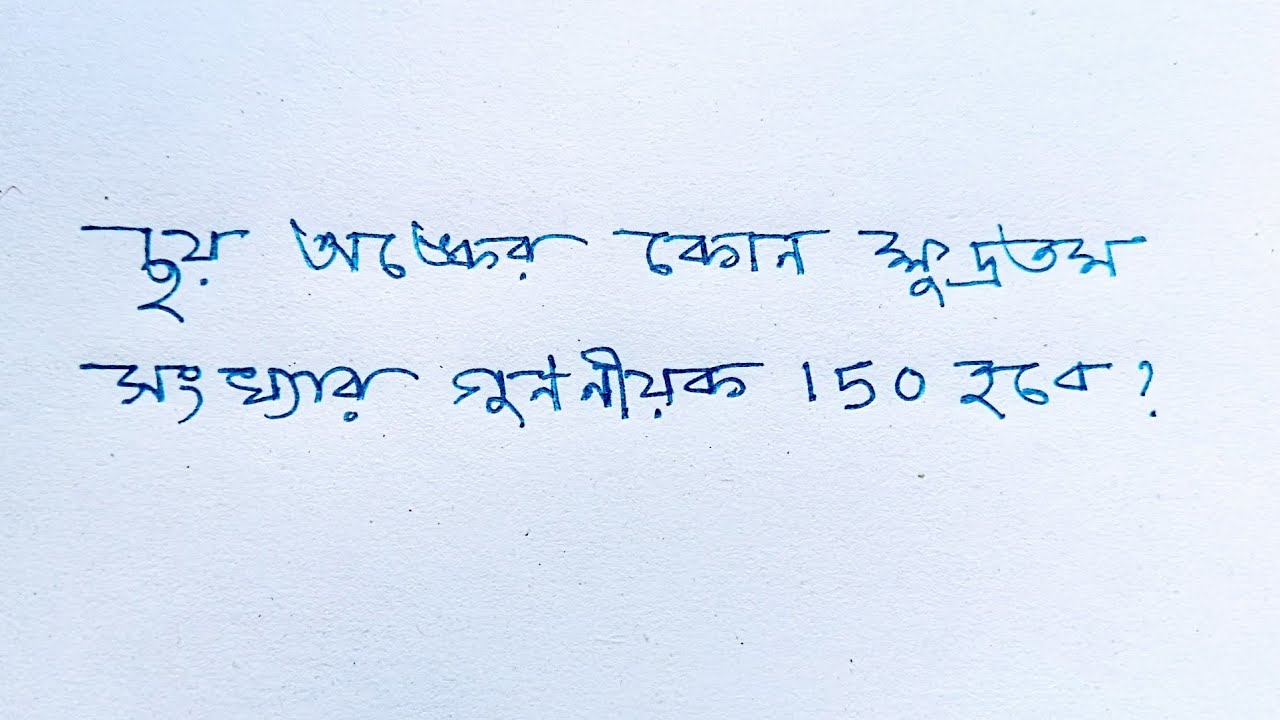 ছয় অঙ্কের কোন ক্ষুদ্রতম
সংখ্যার গুননীয়ক 150 হবে?